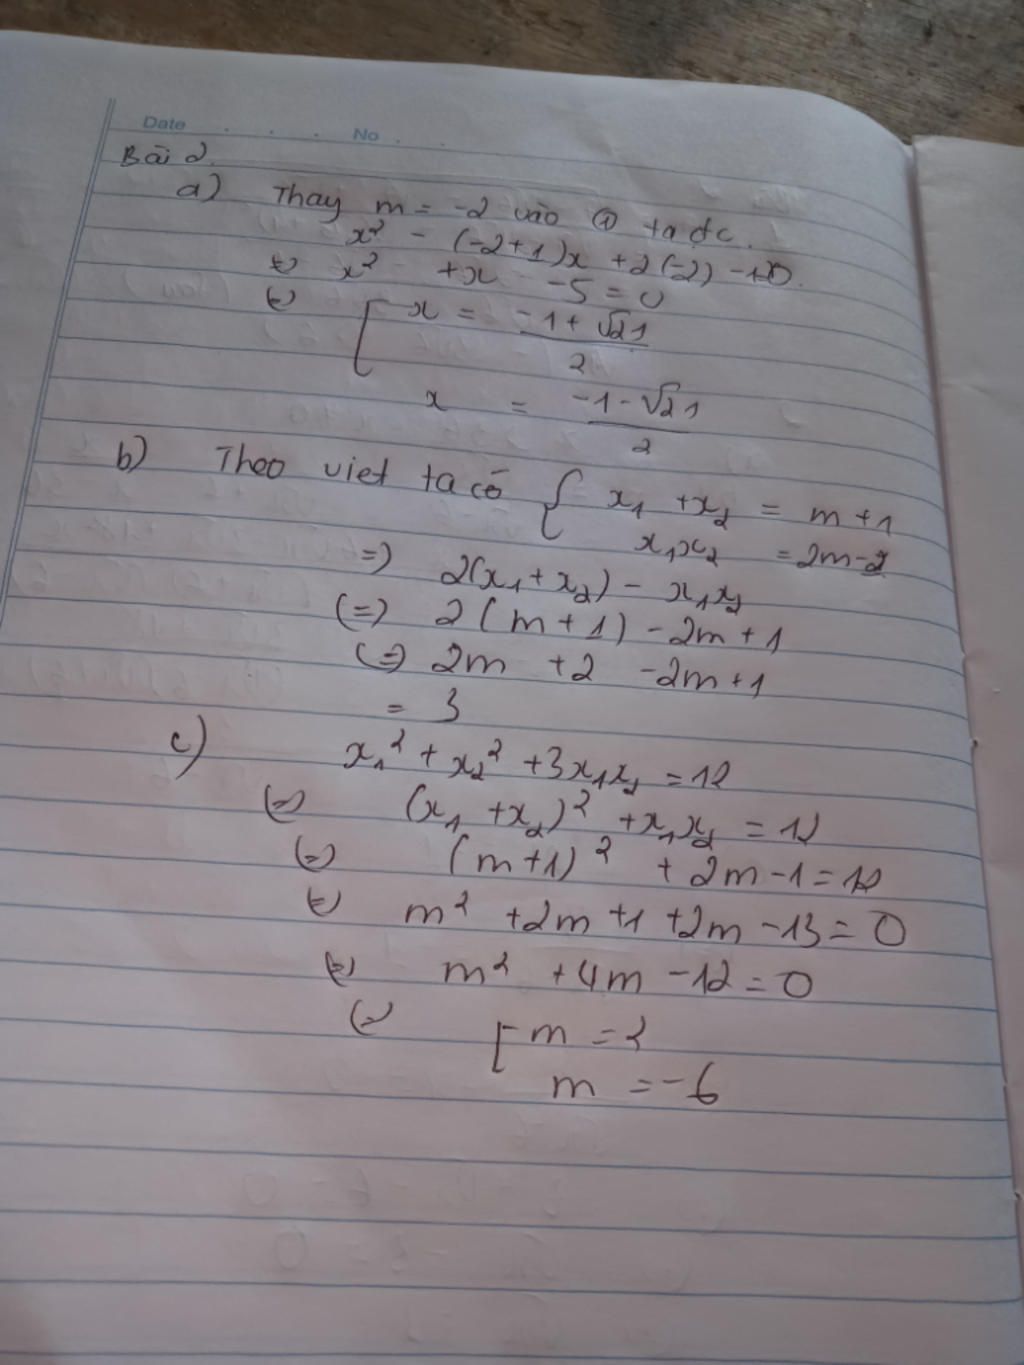 Date . . . No . .
Bài 2.
a) Thay m = -2 vào ① ta đc.
x² - (-2+1)x + 2(-2) - 1=0.
(=) x² + x - 5 = 0
(=) [ x = (-1 + √21)/2
x = (-1 - √21)/2
b) Theo viet ta có { x₁ + x₂ = m + 1
x₁x₂ = 2m-2
=) 2(x₁ + x₂) - x₁x₂
(=) 2(m + 1) - 2m + 1
(=) 2m + 2 - 2m + 1
= 3
c) x₁² + x₂² + 3x₁x₂ = 12
(=) (x₁ + x₂)² + x₁x₂ = 12
(=) (m+1)² + 2m - 1 = 12
(=) m² + 2m + 1 + 2m - 13 = 0
(=) m² + 4m - 12 = 0
(=) [ m = 2
m = -6